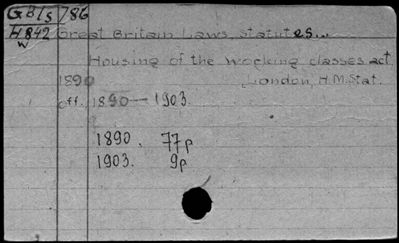 GB/s 786
H842 Great Britain Laws, statutes...
w
Housing of the working classes act,
1890 London, H.M.Stat.
off. 1890—1903.
1890. 77p
1903. 9p